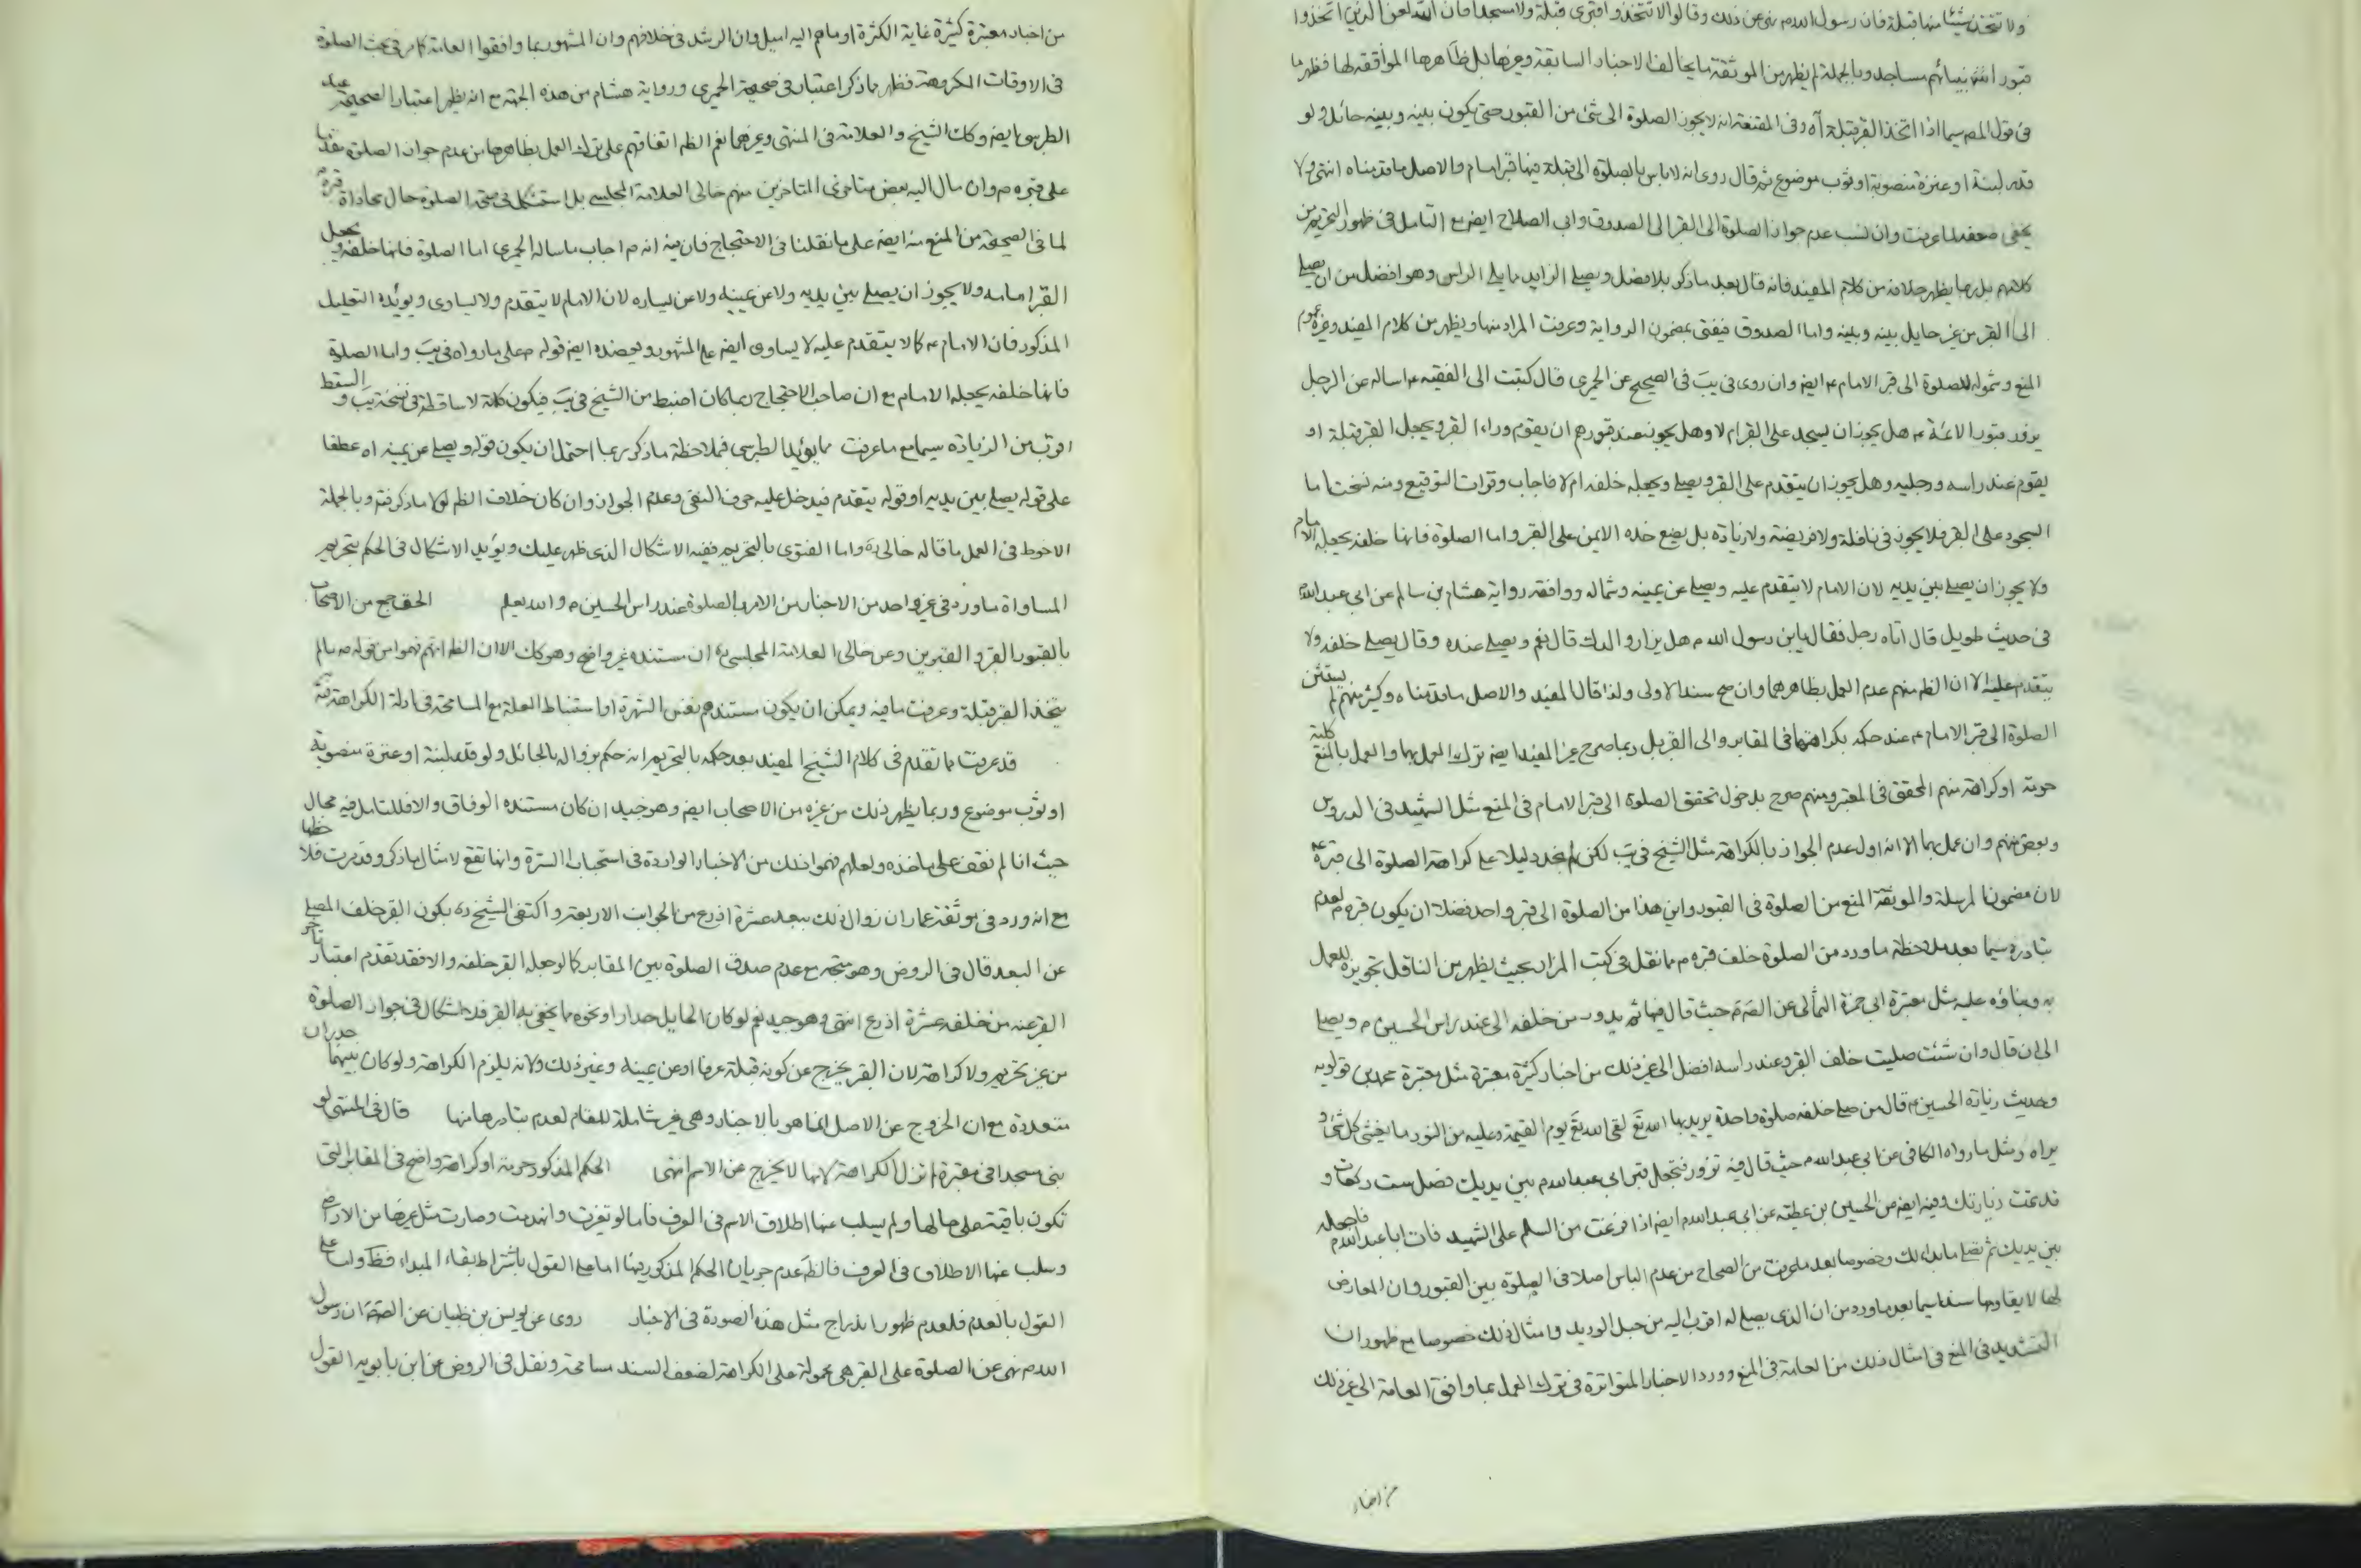 ولا تتخذ شيئا منها قبلة فان رسول الله م نهى عن ذلك وقال ولا تتخذوا قبرى قبلة ولا مسجدا فان الله لعن الذين اتخذوا
قبور انبيائهم مساجد وبالجملة لم يظهر من الموثقة ما يخالف الاخبار السابقة وغيرها بل ظاهرها الموافقة لها فظهر ما
فى قول المص سيما اذا اتخذ القبر قبلة آه وفى المقنعة انه لا يجوز الصلوة الى شئ من القبور حتى يكون بينه وبينه حائل ولو
قدر لبنة او عنزة منصوبة او ثوب موضوع ثم قال روى انه لا باس بالصلوة الى قبلة فيها قبر امام والاصل ما قدمناه انتهى ولا
يخفى ضعفه لما عرفت وان نسب عدم جواز الصلوة الى القبر الى الصدوق وابى الصلاح ايض مع التامل فى ظهور التحريم من
كلامهم بل ربما يظهر خلافه من كلام المفيد فانه قال بعد ما ذكر بلا فصل ويصلى الزاير مما يلى الراس وهو افضل من ان يصلى
الى القبر من غير حايل بينه وبينه واما الصدوق فيفتى بمضمون الرواية وعرفت المراد منها ويظهر من كلام المفيد وغيره عموم
المنع وشموله للصلوة الى قبر الامام ع ايض وان روى فى يب فى الصحيح عن الحميرى قال كتبت الى الفقيه ع اساله عن الرجل
يزور قبور الائمة ع هل يجوز ان يسجد على القبر ام لا وهل يجوز لمن صلى عند قبورهم ان يقوم وراء القبر ويجعل القبر قبلة او
يقوم عند راسه ورجليه وهل يجوز ان يتقدم على القبر ويصلى ويجعله خلفه ام لا فاجاب وقرات التوقيع ومنه نسخت اما
السجود على القبر فلا يجوز فى نافلة ولا فريضة ولا زيادة بل يضع خده الايمن على القبر واما الصلوة فانها خلفه يجعله الامام
ولا يجوز ان يصلى بين يديه لان الامام لا يتقدم عليه ويصلى عن يمينه وشماله ووافقه رواية هشام بن سالم عن ابى عبد الله
فى حديث طويل قال اتاه رجل فقال يابن رسول الله م هل يزار والدك قال نعم ويصلى عنده وقال يصلى خلفه ولا
يتقدم عليه الا ان الظ منهم عدم العمل بظاهرهما وان صح سند الاولى ولذا قال المفيد والاصل ما قدمناه وكثير منهم لم يستثن
الصلوة الى قبر الامام ع عند حكمه بكراهتها فى المقابر والى القبر بل ربما صرح غير المفيد ايض بترك العمل بها والعمل بالمنع كلية
حرمة او كراهة منهم المحقق فى المعتبر ومنهم صرح بدخول تحقق الصلوة الى قبر الامام فى المنع مثل الشهيد فى الدروس
وبعض منهم وان عمل بها الا انه اول عدم الجواز بالكراهة مثل الشيخ فى يب لكن لم نجد دليلا على كراهة الصلوة الى قبره ع
لان مضمون المرسلة والموثقة المنع من الصلوة فى القبور واين هذا من الصلوة الى قبر واحد فضلا ان يكون قبره م لعدم
تبادره سيما بعد ملاحظة ما ورد من الصلوة خلف قبره م مما نقل فى كتب المزار بحيث يظهر من الناقل تجويزه للعمل
به وبناؤه عليه مثل معتبرة ابى حمزة الثمالى عن الص م حيث قال فيها ثم يدور من خلفه الى عند راس الحسين م ويصلى
الى ان قال وان شئت صليت خلف القبر وعند راسه افضل الى غير ذلك من اخبار كثيرة معتبرة مثل معتبرة محمد بن قولويه
وحديث زيارة الحسين م قال من صلى خلفه صلوة واحدة يريد بها الله تع لقى الله تع يوم القيمة وعليه من النور ما يغشى كل شئ و
يراه ومثل ما رواه الكافى عن ابى عبد الله م حيث قال فيه تزور فتجعل قبر ابى عبد الله م بين يديك فصل ست ركعات و
قد تمت زيارتك وفيه ايض عن الحسين بن عطية عن ابى عبد الله م ايض اذا فرغت من السلم على الشهيد فات ابا عبد الله م فاجعله
بين يديك ثم تصلى ما بدا لك وخصوصا بعد ما عرفت من الصحاح من عدم الباس اصلا فى الصلوة بين القبور وان المعارض
لها لا يقاومها سندا سيما بعد ما ورد من ان الذى يصلى له اقرب اليه من حبل الوريد وامثال ذلك خصوصا مع ظهور ان
التشديد فى المنع فى امثال ذلك من العامة فى المنع وورد الاخبار المتواترة فى ترك العمل بما وافق العامة الى غير ذلك
من اخبار
من اخبار معتبرة كثيرة غاية الكثرة او ما هم اليه اميل وان الرشد فى خلافهم وان المشهور بما وافقوا العامة كما مر فى بحث الصلوة
فى الاوقات المكروهة فظهر ما ذكر اعتبار فى صحيحة الحميرى ورواية هشام من هذه الجهة مع انه يظهر اعتبار الصحيحة عند
الطبرسى ايض وكك الشيخ والعلامة فى المنتهى وغيرهما نعم الظ اتفاقهم على ترك العمل بظاهرها من عدم جواز الصلوة مقدما
على قبره م وان مال اليه بعض متاخرى المتاخرين منهم خالى العلامة المجلسى بل استشكل فى صحة الصلوة حال محاذاة قبره م
لما فى الصحيحة من المنع منه ايض على ما نقلنا فى الاحتجاج فان فيه انه م اجاب ما ساله الحميرى اما الصلوة فانها خلفه ويجعل
القبر امامه ولا يجوز ان يصلى بين يديه ولا عن يمينه ولا عن يساره لان الامام لا يتقدم ولا يساوى ويؤيده التعليل
المذكور فان الامام ع كما لا يتقدم عليه لا يساوى ايض على المشهور ويعضده ايض قوله م على ما رواه فى يب واما الصلوة
فانها خلفه يجعله الامام مع ان صاحب الاحتجاج ربما كان اضبط من الشيخ فى يب فيكون كلمة لا ساقطة فى نسخة يب والسقط
اقرب من الزيادة سيما مع ما عرفت مما يؤيد الطبرسى فملاحظة ما ذكر ربما احتمل ان يكون قوله ويصلى عن يمينه اه عطفا
على قوله يصلى بين يديه او قوله يتقدم فيدخل عليه حرف النفى وعدم الجواز وان كان خلاف الظ لولا ما ذكر فتم وبالجملة
الاحوط فى العمل ما قاله خالى ره واما الفتوى بالتحريم ففيه الاشكال الذى ظهر عليك ويؤيد الاشكال فى الحكم بتحريم
المساواة ما ورد فى غير واحد من الاخبار من الامر بالصلوة عند راس الحسين م والله يعلم الحق جمع من الاصحاب
بالقبور القبر والقبرين وعن خالى العلامة المجلسى ره ان مستنده غير واضح وهو كك الا ان الظ انهم فهموا من قوله ص ما لم
يتخذ القبر قبلة وعرفت ما فيه ويمكن ان يكون مستندهم نفس الشهرة او استنباط العلة مع المسامحة فى ادلة الكراهة فتم
قد عرفت ما تقدم فى كلام الشيخ المفيد بعد حكمه بالتحريم انه حكم بزواله بالحائل ولو قدر لبنة او عنزة منصوبة
او ثوب موضوع وربما يظهر ذلك من غيره من الاصحاب ايض وهو جيد ان كان مستنده الوفاق والا فللتامل فيه مجال
حيث انا لم نقف على ماخذه ولعلهم فهموا ذلك من الاخبار الواردة فى استحباب السترة وانها تقع لامثال ما ذكر وقد مرت فلاحظها
مع انه ورد فى موثقة عمار ان زوال ذلك ببعد عشرة اذرع من الجوانب الاربعة واكتفى الشيخ ره بكون القبر خلف المصلى
عن البعد قال فى الروض وهو متجه مع عدم صدق الصلوة بين المقابر كما لو جعل القبر خلفه والا فقد تقدم اعتبار تاخر
القبر عنه من خلفه عشرة اذرع انتهى وهو جيد نعم لو كان الحايل جدارا او نحوه مما يخفى به القبر فلا اشكال فى جواز الصلوة
من غير تحريم ولا كراهة لان القبر يخرج عن كونه قبلة عرفا او عن يمينه وغير ذلك ولانه يلزم الكراهة ولو كان بينهما جدران
متعددة مع ان الخروج عن الاصل انما هو بالاخبار وهى غير شاملة للمقام لعدم تبادرها منها قال فى المنتهى لو
بنى مسجدا فى مقبرة لم تزل الكراهة لانها لا يخرج عن الاسم انتهى الحكم المذكور حرمة او كراهة واضح فى المقابر التى
تكون باقية على حالها ولم يسلب عنها اطلاق الاسم فى العرف فاما لو تغيرت وانهدمت وصارت مثل غيرها من الاراضى
وسلب عنها الاطلاق فى العرف فالظ عدم جريان الحكم المذكور فيها اما على القول باشتراط بقاء المبداء فظ واما على
القول بالعدم فلعدم ظهور اندراج مثل هذه الصورة فى الاخبار روى عن يونس بن ظبيان عن الص م ان رسول
الله م نهى عن الصلوة على القبر هى محمولة على الكراهة لضعف السند مسامحة ونقل فى الروض عن ابن بابويه القول